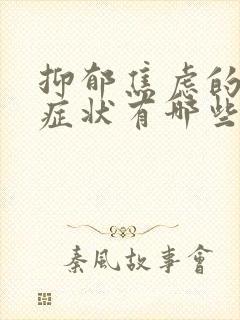 抑郁焦虑的
症状有哪些
秦风故事會